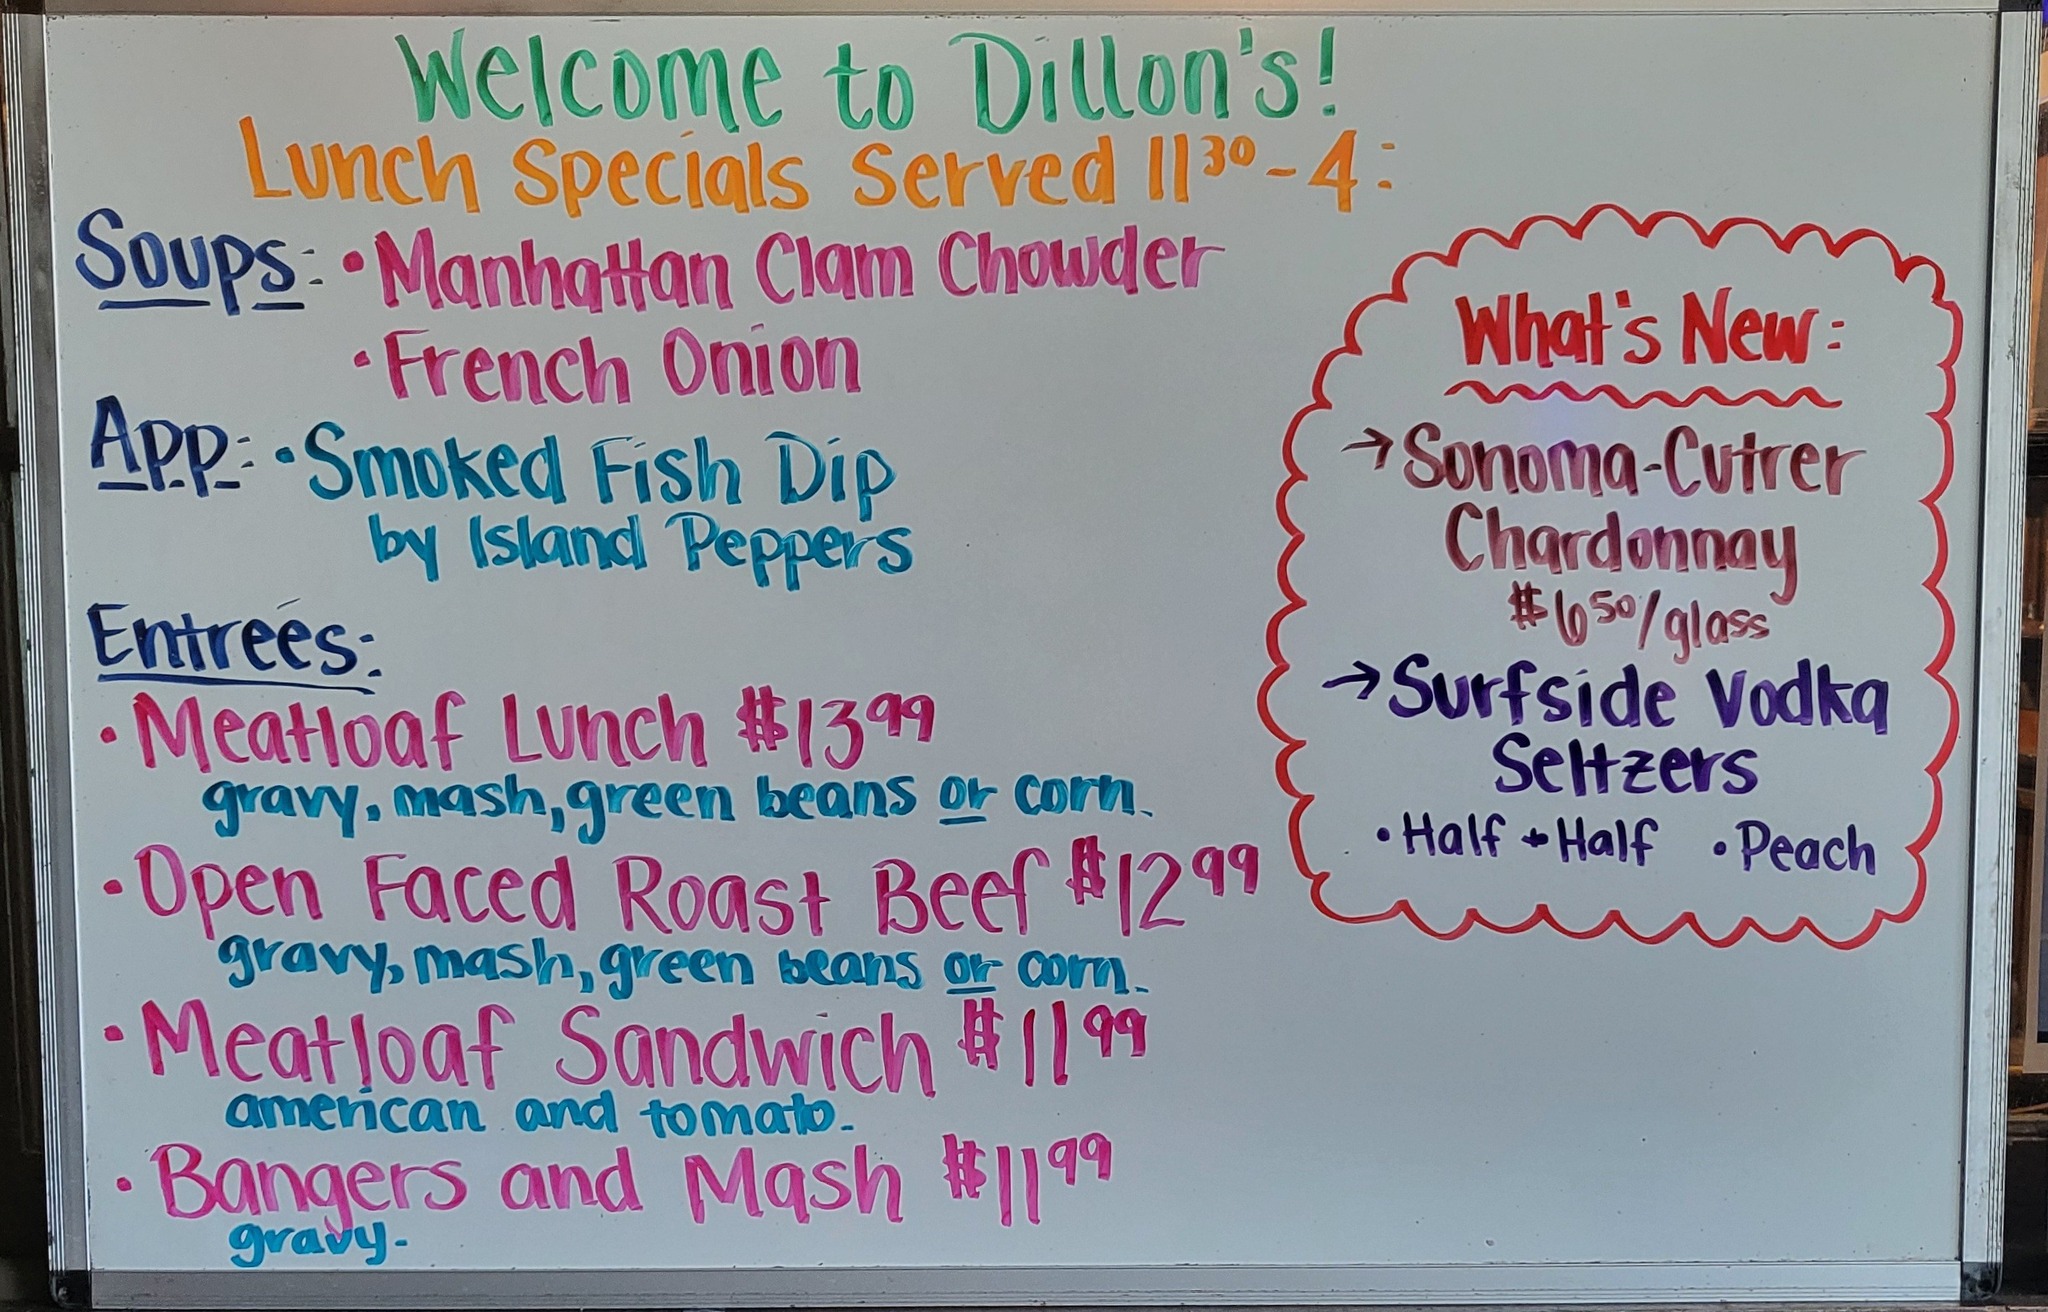 Welcome to Dillon's!
Lunch Specials Served 11³⁰-4:
Soups: • Manhattan Clam Chowder
• French Onion
App: • Smoked Fish Dip
by Island Peppers
Entreés:
• Meatloaf Lunch $13⁹⁹
gravy, mash, green beans or corn.
• Open Faced Roast Beef $12⁹⁹
gravy, mash, green beans or corn.
• Meatloaf Sandwich $11⁹⁹
american and tomato.
• Bangers and Mash $11⁹⁹
gravy.
What's New:
→ Sonoma-Cutrer
Chardonnay
$6⁵⁰/glass
→ Surfside Vodka
Seltzers
• Half + Half • Peach